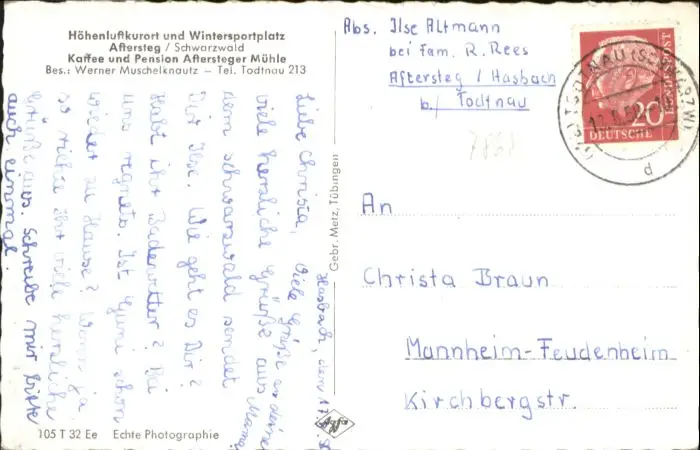 Höhenluftkurort und Wintersportplatz
Aftersteg / Schwarzwald
Kaffee und Pension Aftersteger Mühle
Bes.: Werner Muschelknautz – Tel. Todtnau 213
Hasbach, den 17.
Liebe Christa,
viele herzliche Grüße aus
dem schwarzwald sendet
Dir Ilse. Wie geht es Dir?
Habt ihr Badewetter? Bei
uns regnets. Ist schon
wieder zu Hause? Wenn ja
so richte ihr viele herzliche
Grüße aus. Schreibe mir bitte
auch einmal.
Viele Grüße an deine
Mama
105 T 32 Ee Echte Photographie
Gebr. Metz, Tübingen
Abs. Ilse Altmann
bei Fam. R. Rees
Aftersteg / Hasbach
b/ Todtnau
An
Christa Braun
Mannheim-Feudenheim
Kirchbergstr.
20
DEUTSCHE
BUNDESPOST
TODTNAU (SCHWARZW)
d